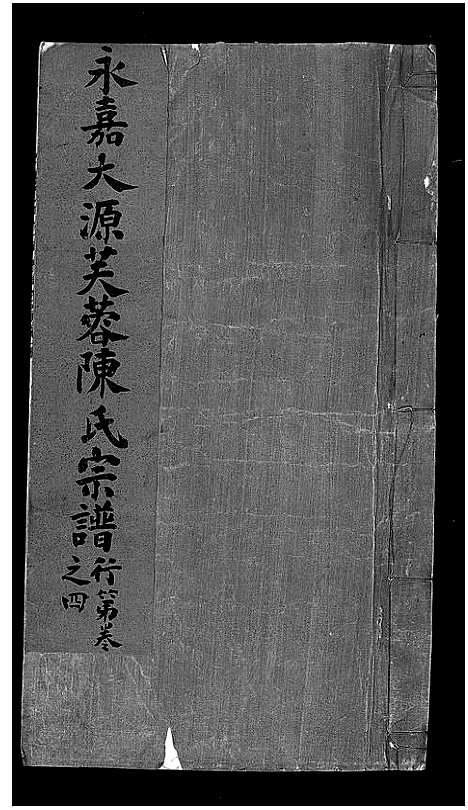 永嘉大源芙蓉陳氏宗譜
行第卷
之四